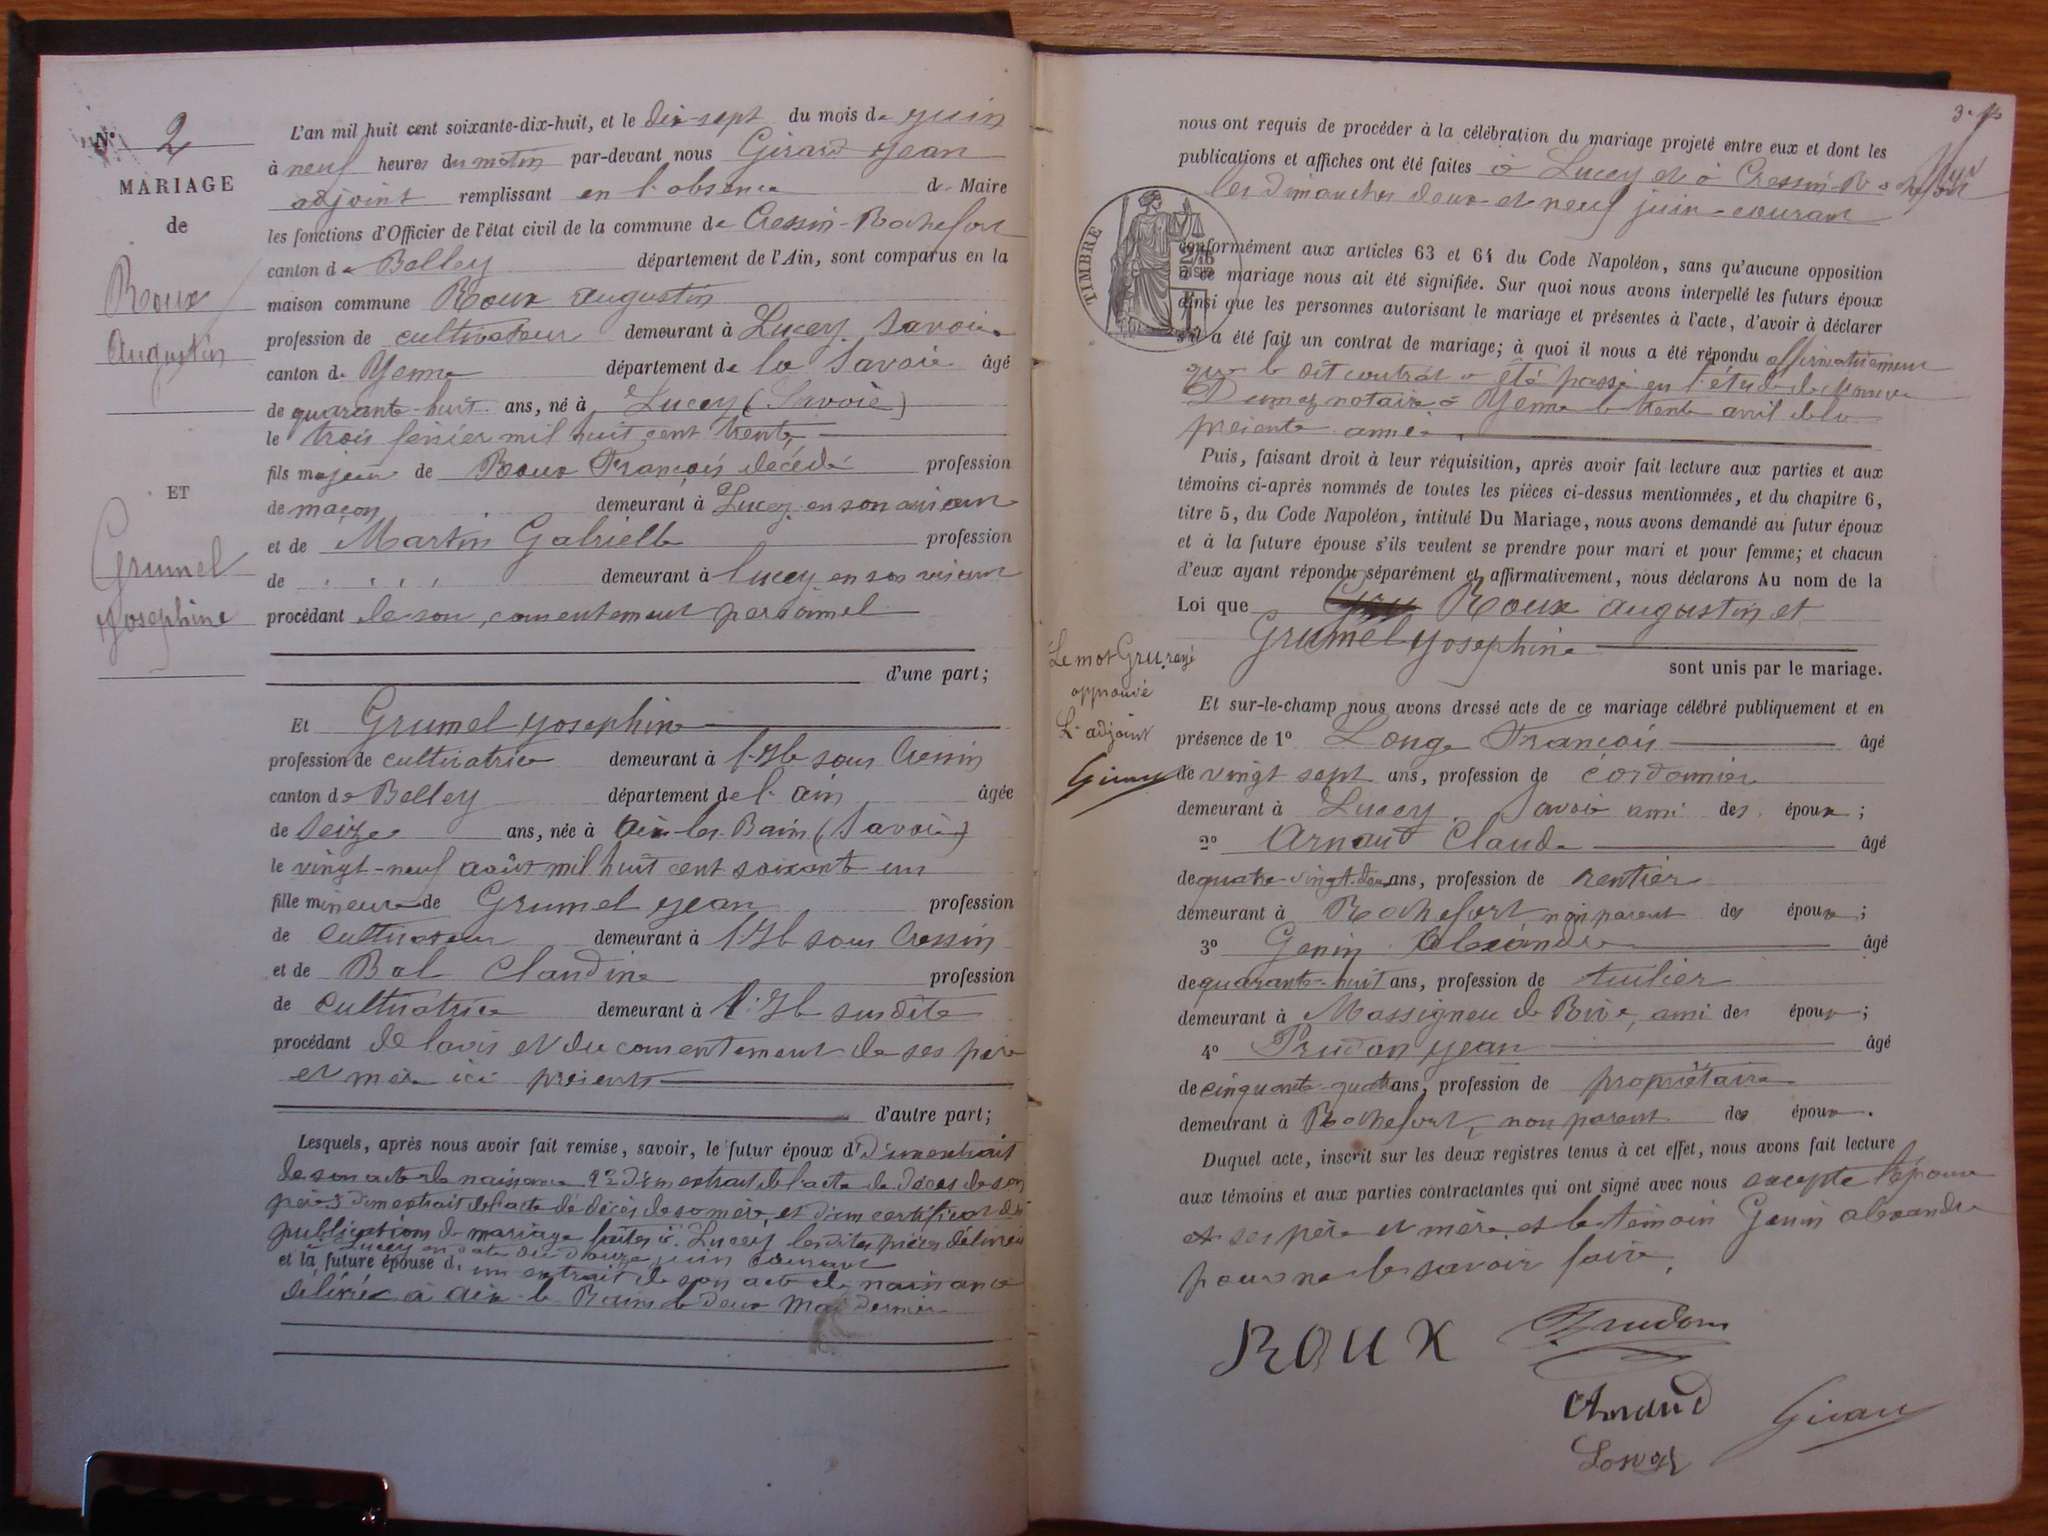 N° 2
MARIAGE
de
Roux
Augustin
ET
Grumel
Josephine
L'an mil huit cent soixante-dix-huit, et le dix-sept du mois de juin
à neuf heures du matin par-devant nous Girard Jean
adjoint remplissant en l'absence de Maire
les fonctions d'Officier de l'état civil de la commune de Cressin-Rochefort
canton de Belley département de l'Ain, sont comparus en la
maison commune Roux Augustin
profession de cultivateur demeurant à Lucey Savoie
canton de Yenne département de la Savoie âgé
de quarante-huit ans, né à Lucey (Savoie)
le trois fevrier mil huit cent trente
fils majeur de Roux François décédé profession
de maçon demeurant à Lucey en son vivant
et de Martin Gabrielle profession
de demeurant à Lucey en son vivant
procédant de son consentement personnel
d'une part;
Et Grumel Josephine
profession de cultivatrice demeurant à l'Ile sous Cressin
canton de Belley département de l'ain âgée
de seize ans, née à Aix-les-Bains (Savoie)
le vingt-neuf août mil huit cent soixante-un
fille mineure de Grumel Jean profession
de cultivateur demeurant à l'Ile sous Cressin
et de Bal Claudine profession
de cultivatrice demeurant à l'Ile susdite
procédant de l'avis et du consentement de ses père
et mère ici présents
d'autre part;
Lesquels, après nous avoir fait remise, savoir, le futur époux d' 1° d'un extrait
de son acte de naissance 2° d'un extrait de l'acte de décès de son
père 3° d'un extrait de l'acte de décès de sa mère, et d'un certificat de
publications de mariage faites à Lucey lesdites pièces délivrées
à Lucey en date du douze juin courant
et la future épouse d'un extrait de son acte de naissance
délivré à Aix-les-Bains le deux Mai dernier
3.
nous ont requis de procéder à la célébration du mariage projeté entre eux et dont les
publications et affiches ont été faites à Lucey et à Cressin-Rochefort
les dimanches deux et neuf juin courant
TIMBRE
conformément aux articles 63 et 64 du Code Napoléon, sans qu'aucune opposition
à ce mariage nous ait été signifiée. Sur quoi nous avons interpellé les futurs époux
ainsi que les personnes autorisant le mariage et présentes à l'acte, d'avoir à déclarer
s'il a été fait un contrat de mariage; à quoi il nous a été répondu affirmativement
que le dit contrat a été passé en l'étude de
Dumaz notaire à Yenne le trente avril de la
présente année.
Puis, faisant droit à leur réquisition, après avoir fait lecture aux parties et aux
témoins ci-après nommés de toutes les pièces ci-dessus mentionnées, et du chapitre 6,
titre 5, du Code Napoléon, intitulé Du Mariage, nous avons demandé au futur époux
et à la future épouse s'ils veulent se prendre pour mari et pour femme; et chacun
d'eux ayant répondu séparément et affirmativement, nous déclarons Au nom de la
Loi que Gru Roux Augustin et
Grumel Josephine
sont unis par le mariage.
Le mot Gru rayé
approuvé
L'adjoint
Girard
Et sur-le-champ nous avons dressé acte de ce mariage célébré publiquement et en
présence de 1° Longe François âgé
de vingt sept ans, profession de cordonnier
demeurant à Lucey Savoie ami des époux;
2° Arnaud Claude âgé
de quatre-vingt-deux ans, profession de rentier
demeurant à Rochefort non parent des époux;
3° Genin Alexandre âgé
de quarante-huit ans, profession de tuilier
demeurant à Massigneu de Rive, ami des époux;
4° Prudon Jean âgé
de cinquante-quatre ans, profession de propriétaire
demeurant à Rochefort, non parent des époux.
Duquel acte, inscrit sur les deux registres tenus à cet effet, nous avons fait lecture
aux témoins et aux parties contractantes qui ont signé avec nous excepté l'épouse
et ses père et mère et le témoin Genin Alexandre
pour ne le savoir faire.
ROUX Prudon
Arnaud Girard
Longe